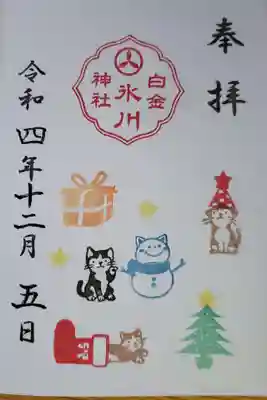 奉拝
白金
氷川
神社
令和四年十二月五日